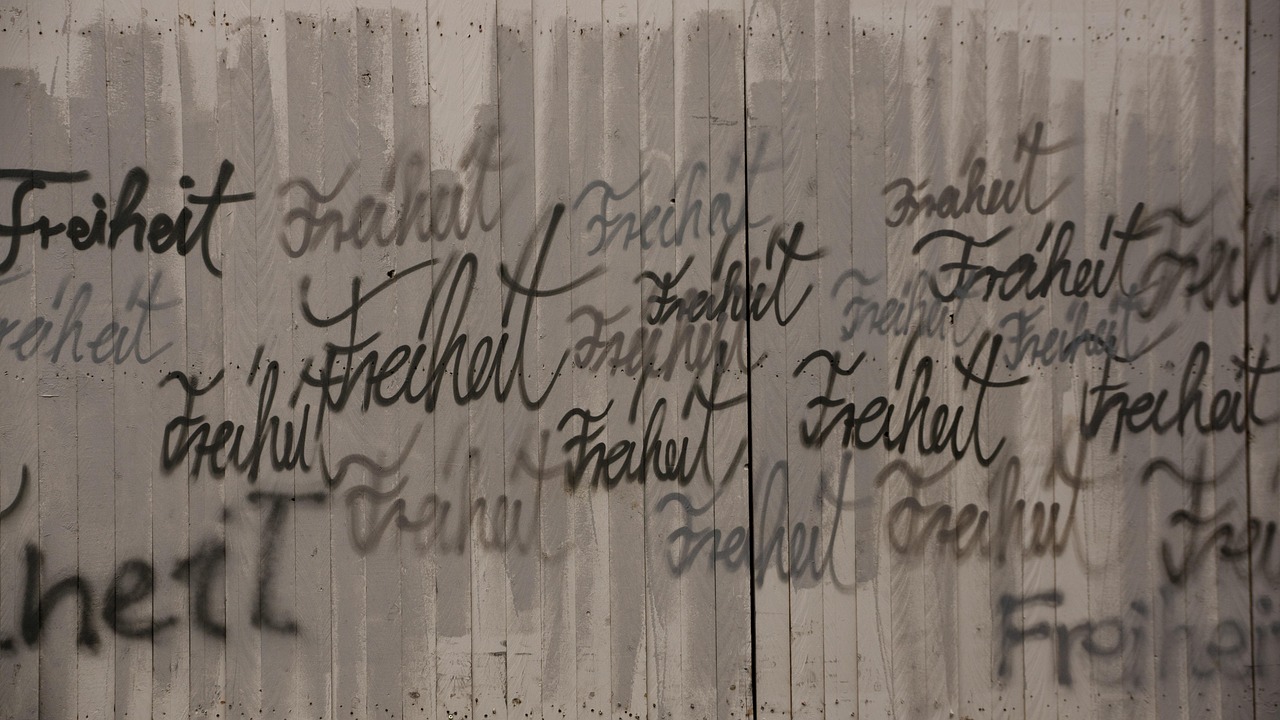 Freiheit
Freiheit
Freiheit
Freiheit
Freiheit
Freih
reiheit
Freiheit
Freiheit
Freiheit
Freiheit
Freiheit
Freiheit
Freiheit
Freiheit
Freiheit
Freiheit
Freiheit
Freiheit
Frei
heit
Freihei